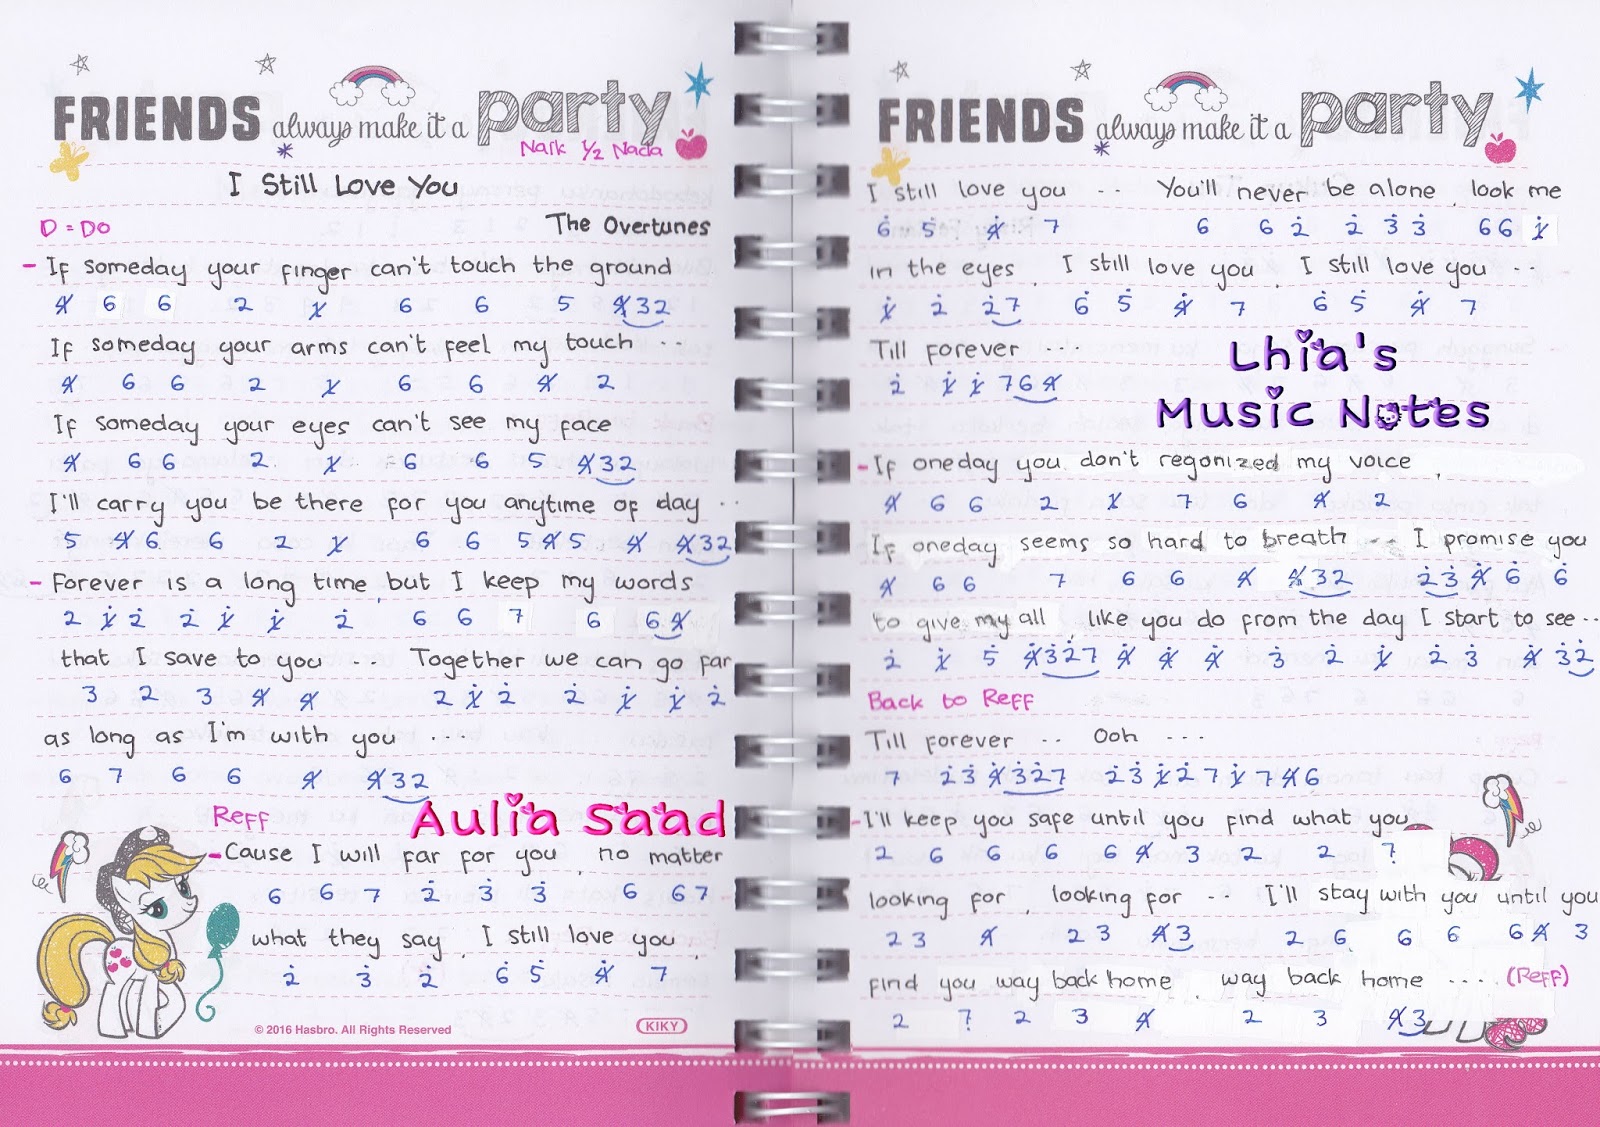 FRIENDS always make it a party
Naik 1/2 Nada
I Still Love You
D = Do
The Overtunes
- If someday your finger can't touch the ground
4 6 6 2 1 6 6 5 4 3 2
If someday your arms can't feel my touch ..
4 6 6 2 1 6 6 4 2
If someday your eyes can't see my face
4 6 6 2 1 6 6 5 4 3 2
I'll carry you be there for you anytime of day ..
5 4 6 6 2 1 6 6 5 4 5 4 4 3 2
- Forever is a long time, but I keep my words
2 1 2 2 1 1 2 6 6 7 6 6 4
that I save to you ... Together we can go far
3 2 3 4 4 2 1 2 2 1 1 2
as long as I'm with you ....
6 7 6 6 4 4 3 2
Reff
Aulia Saad
- Cause I will far for you, no matter
6 6 7 2 3 3 6 6 7
what they say, I still love you,
2 3 2 6 5 4 7
© 2016 Hasbro. All Rights Reserved
KIKY
FRIENDS always make it a party
I still love you .. You'll never be alone, look me
6 5 4 7 6 6 2 2 3 3 6 6 1
in the eyes, I still love you, I still love you ..
1 2 2 7 6 5 4 7 6 5 4 7
Till forever ...
2 1 1 7 6 4
Lhia's
Music Notes
- If oneday you don't regonized my voice,
4 6 6 2 1 7 6 4 2
If oneday seems so hard to breath .. I promise you
4 6 6 7 6 6 4 4 3 2 2 3 4 6 6
to give my all like you do from the day I start to see ..
2 1 5 4 3 2 7 4 4 4 3 2 1 2 3 4 3 2
Back to Reff
Till forever .. Ooh ...
7 2 3 4 3 2 7 2 3 1 2 7 1 7 4 6
- I'll keep you safe until you find what you
2 6 6 6 6 4 3 2 2 7
looking for, looking for .. I'll stay with you until you
2 3 4 2 3 4 3 2 6 6 6 6 4 3
find you way back home, way back home .... (Reff)
2 7 2 3 4 2 3 4 3